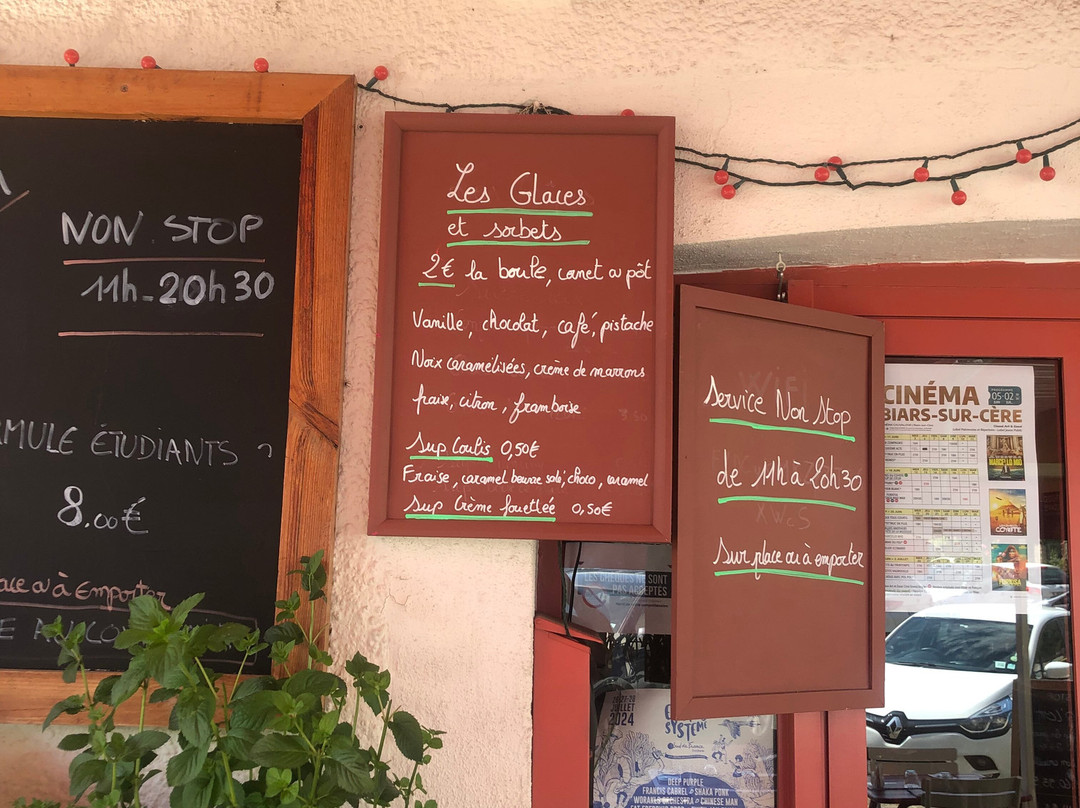 NON STOP
11h-20h30
RMULE ÉTUDIANTS
8.00€
ace ou à Emporter
Les Glaces
et sorbets
2€ la boule, cornet ou pôt
Vanille, chocolat, café, pistache
Noix caramélisées, crème de marrons
fraise, citron, framboise
Sup Coulis 0,50€
Fraise, caramel beurre salé, choco, caramel
Sup Crème fouettée 0,50€
Service Non Stop
de 11h à 20h30
Sur place ou à emporter
CINÉMA
05-02
BIARS-SUR-CÈRE
LES CHÈQUES NE SONT
PAS ACCEPTÉS
JUILLET
2024
SYSTÈME
DEEP PURPLE
FRANCIS CABREL SHAKA PONK
WORAKLS ORCHESTRA CHINESE MAN